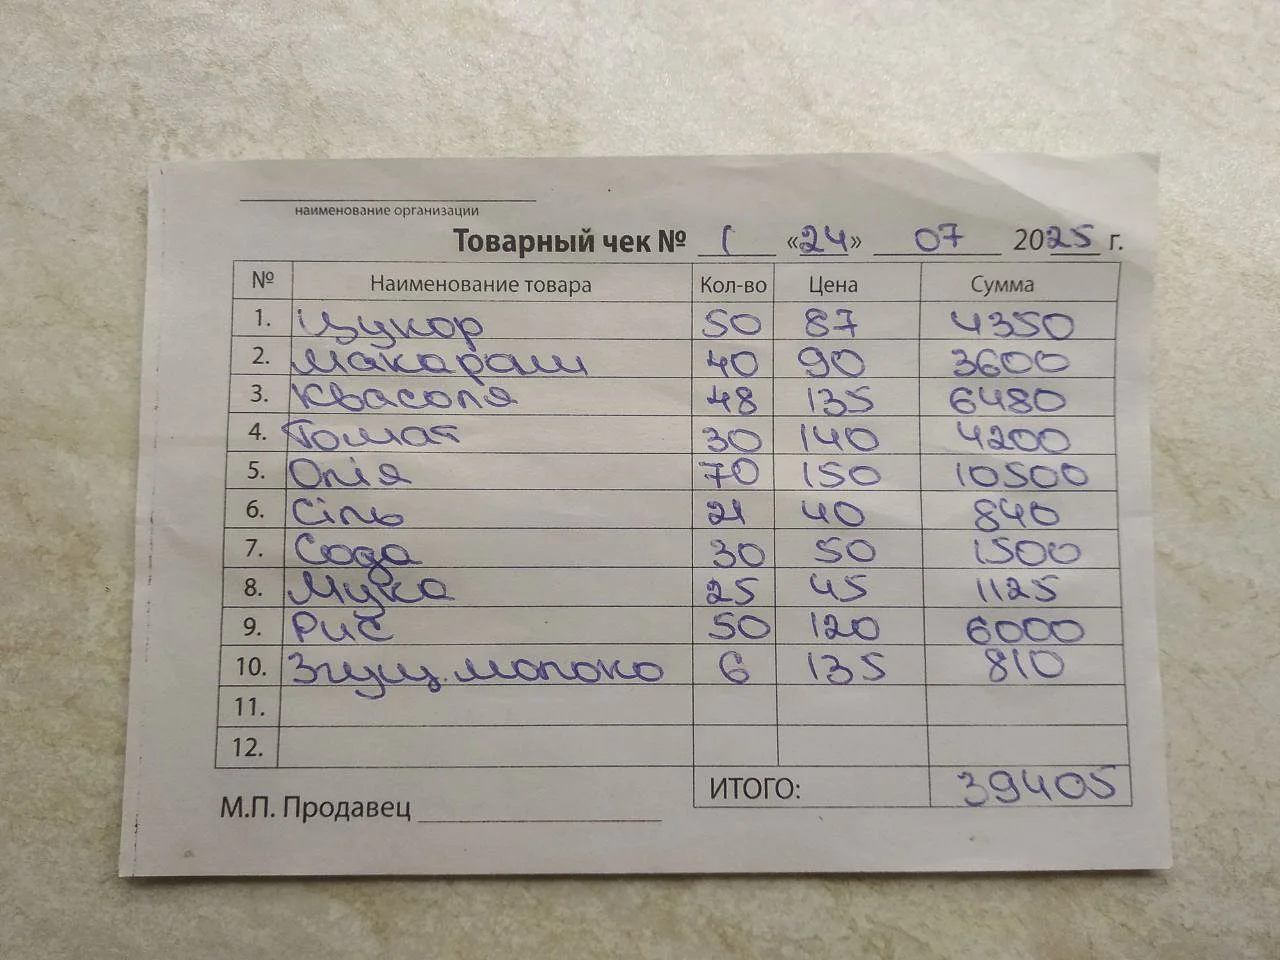 наименование организации
Товарный чек № 1 «24» 07 2025 г.
№ Наименование товара Кол-во Цена Сумма
1. Цукор 50 87 4350
2. Макарони 40 90 3600
3. Квасоля 48 135 6480
4. Томат 30 140 4200
5. Олія 70 150 10500
6. Сіль 21 40 840
7. Сода 30 50 1500
8. Мука 25 45 1125
9. Рис 50 120 6000
10. Згущ. молоко 6 135 810
11.
12.
ИТОГО: 39405
М.П. Продавец